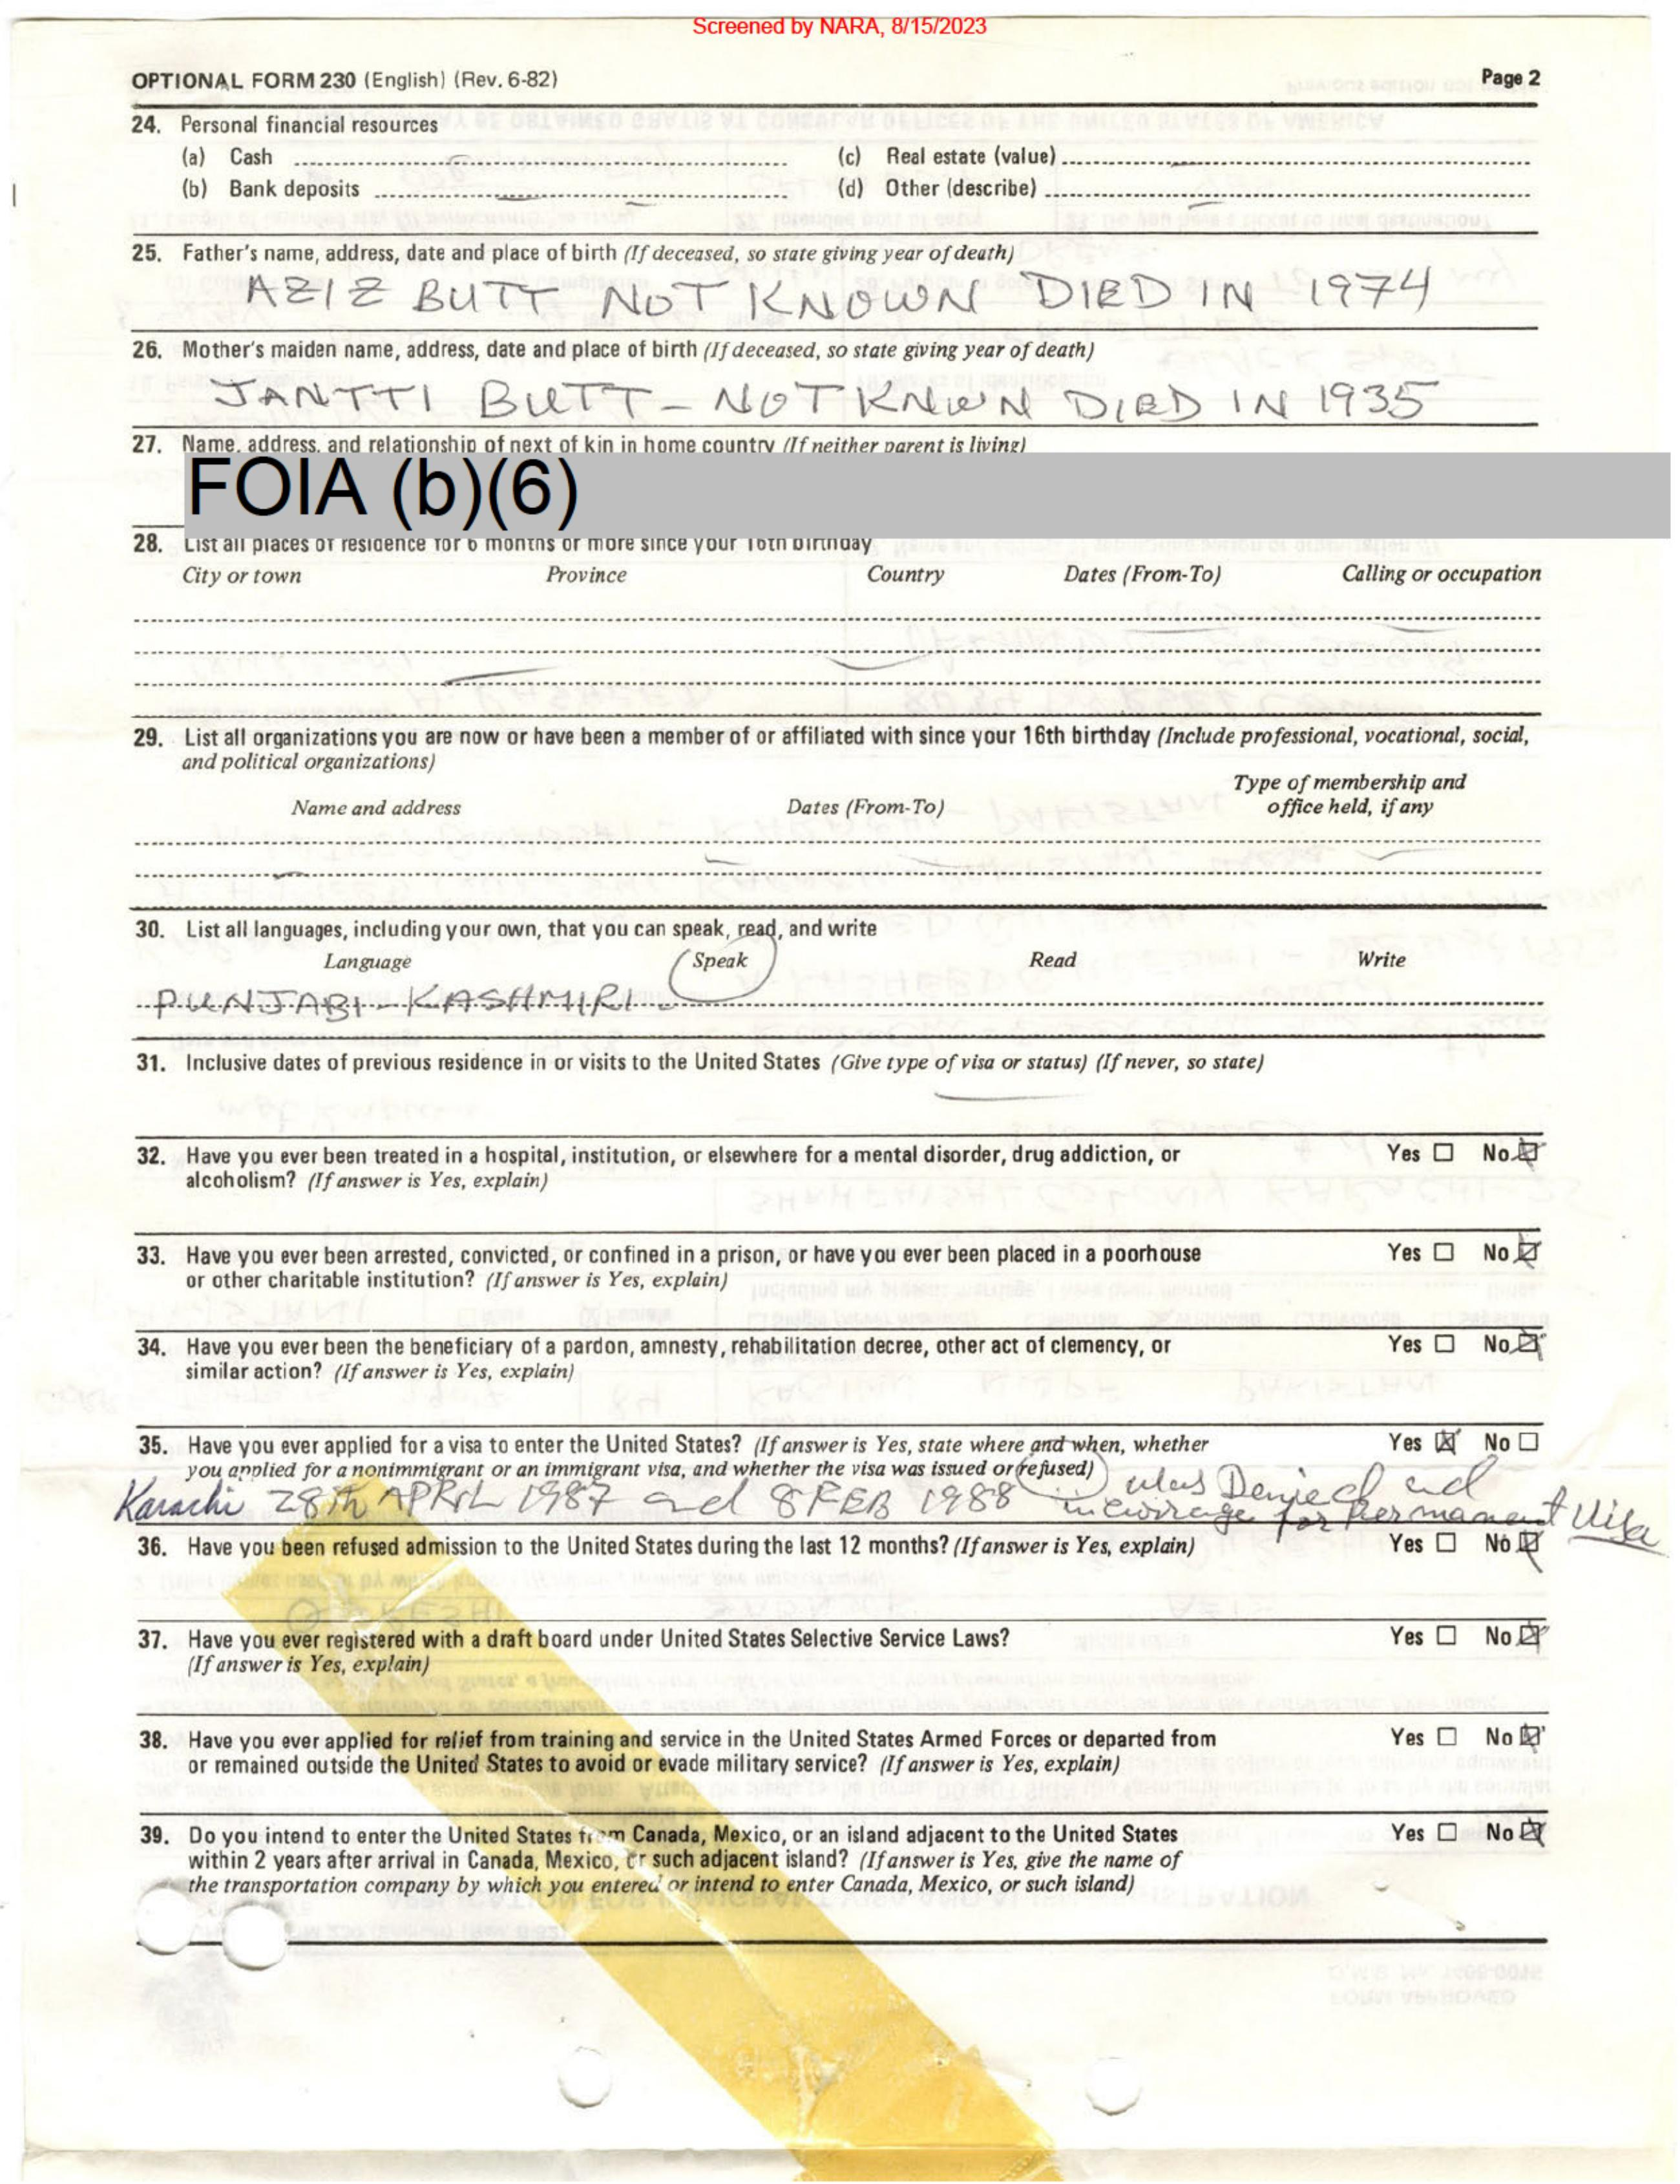 Screened by NARA, 8/15/2023
OPTIONAL FORM 230 (English) (Rev. 6-82)
Page 2
24. Personal financial resources
(a) Cash
(c) Real estate (value)
(b) Bank deposits
(d) Other (describe)
25. Father's name, address, date and place of birth (If deceased, so state giving year of death)
AZIZ BUTT NOT KNOWN DIED IN 1974
26. Mother's maiden name, address, date and place of birth (If deceased, so state giving year of death)
JANTTI BUTT - NOT KNWN DIED IN 1935
27. Name, address, and relationship of next of kin in home country (If neither parent is living)
FOIA (b)(6)
28. List all places of residence for 6 months or more since your 16th birthday
City or town Province Country Dates (From-To) Calling or occupation
29. List all organizations you are now or have been a member of or affiliated with since your 16th birthday (Include professional, vocational, social,
and political organizations)
Type of membership and
Name and address Dates (From-To) office held, if any
30. List all languages, including your own, that you can speak, read, and write
Language Speak Read Write
PUNJABI - KASHMIRI -
31. Inclusive dates of previous residence in or visits to the United States (Give type of visa or status) (If never, so state)
32. Have you ever been treated in a hospital, institution, or elsewhere for a mental disorder, drug addiction, or Yes No
alcoholism? (If answer is Yes, explain)
33. Have you ever been arrested, convicted, or confined in a prison, or have you ever been placed in a poorhouse Yes No
or other charitable institution? (If answer is Yes, explain)
34. Have you ever been the beneficiary of a pardon, amnesty, rehabilitation decree, other act of clemency, or Yes No
similar action? (If answer is Yes, explain)
35. Have you ever applied for a visa to enter the United States? (If answer is Yes, state where and when, whether Yes No
you applied for a nonimmigrant or an immigrant visa, and whether the visa was issued or refused)
was Denied and
Karachi 28th APRIL 1987 and 8 FEB 1988
for Permanent Visa
36. Have you been refused admission to the United States during the last 12 months? (If answer is Yes, explain) Yes No
37. Have you ever registered with a draft board under United States Selective Service Laws? Yes No
(If answer is Yes, explain)
38. Have you ever applied for relief from training and service in the United States Armed Forces or departed from Yes No
or remained outside the United States to avoid or evade military service? (If answer is Yes, explain)
39. Do you intend to enter the United States from Canada, Mexico, or an island adjacent to the United States Yes No
within 2 years after arrival in Canada, Mexico, or such adjacent island? (If answer is Yes, give the name of
the transportation company by which you entered or intend to enter Canada, Mexico, or such island)